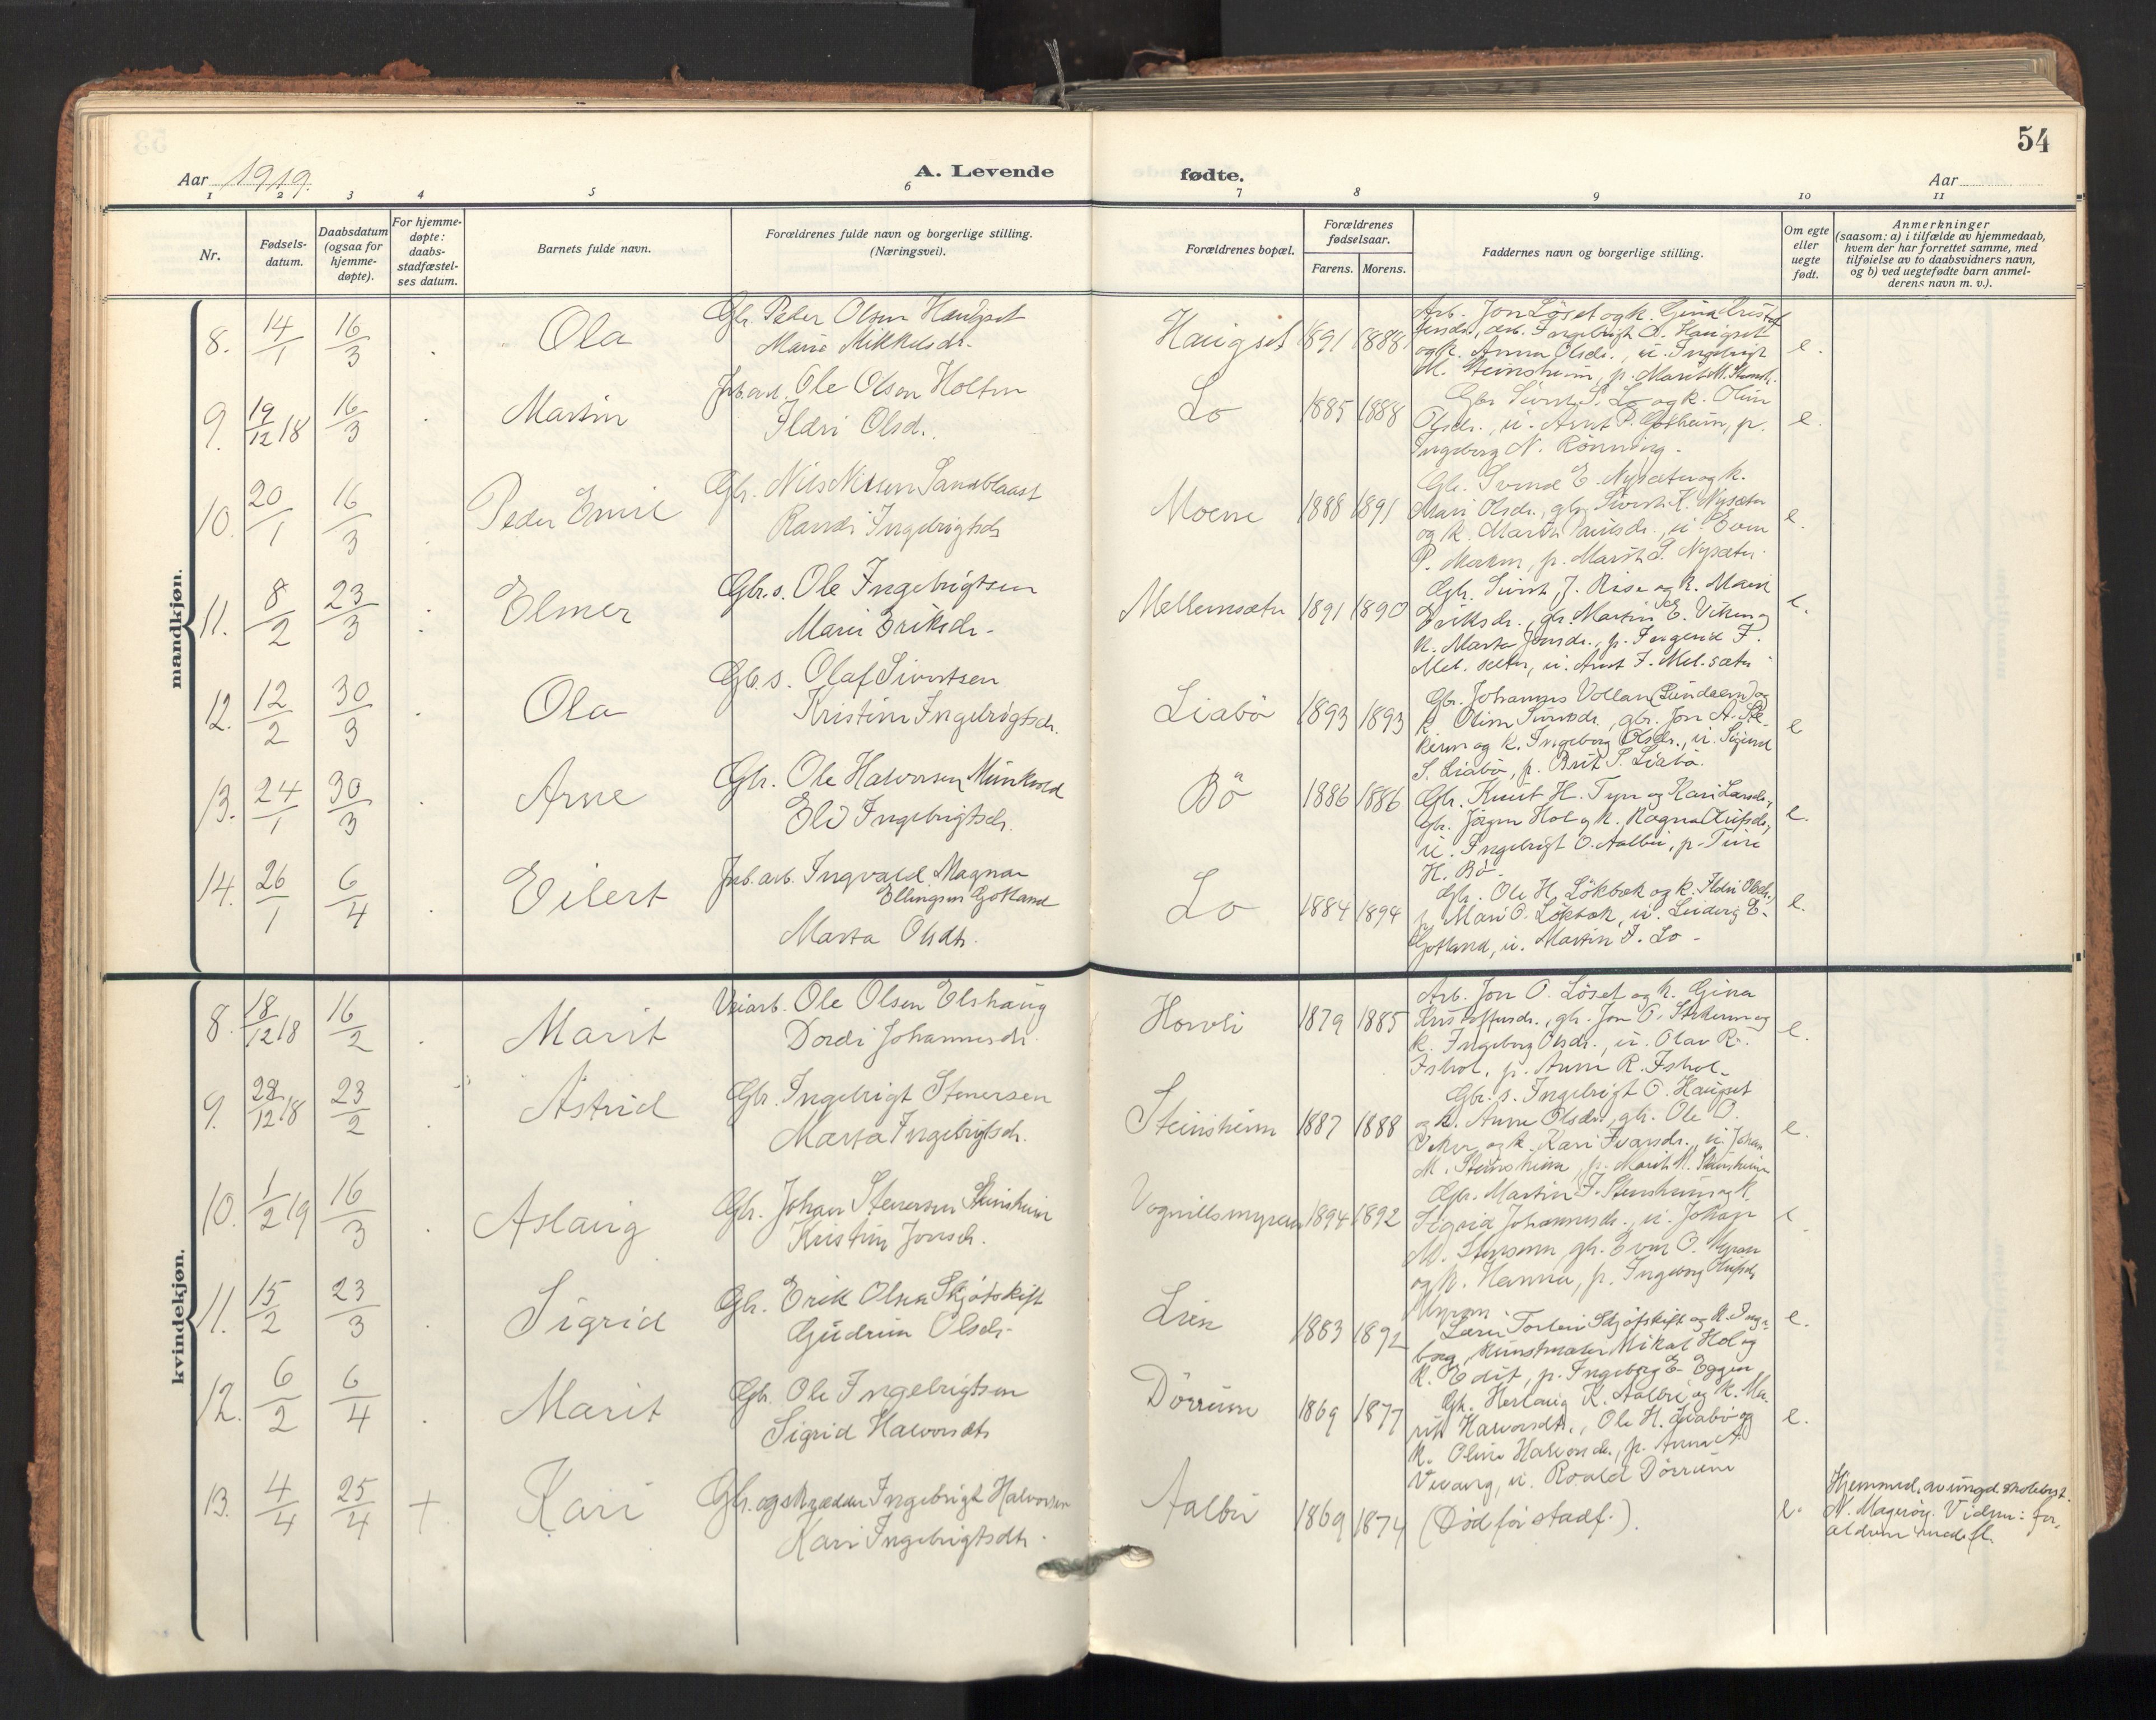 54
Aar 1919.
A. Levende
fødte.
Aar
1 2 3 4 5 6 7 8 9 10 11
Nr.
Fødsels-
datum.
Daabsdatum
(ogsaa for
hjemme-
døpte).
For hjemme-
døpte:
daabs-
stadfæstel-
ses datum.
Barnets fulde navn.
Forældrenes fulde navn og borgerlige stilling.
(Næringsvei).
Forældrenes bopæl.
Forældrenes
fødselsaar.
Farens. Morens.
Faddernes navn og borgerlige stilling.
Om egte
eller
uegte
født.
Anmerkninger
(saasom: a) i tilfælde av hjemmedaab,
hvem der har forrettet samme, med
tilføielse av to daabsvidners navn,
og b) ved uegtefødte barn anmel-
derens navn m. v.).
mandkjøn.
8. 14/1 16/3 Ola
Gbr. Peder Olsen Haugset
Marie Mikkelsdr.
Haugset 1891 1888
Arb. Jon Löset og k. Gina Kristof
fersdr., arb. Ingebrigt O. Haugset
og k. Anna Olsdr., u. Ingebrigt
M. Steinsheim, p. Marit M. Steinsh.
e.
9. 19/12 18 16/3 Martin
Jrb.arb. Ole Olsen Holten
Ildri Olsd.
Lo 1885 1888
Gbr. Sivert S. Lo og k. Olin
Olsdr., u. Arnt P. Gotheim, p.
Ingeborg N. Rönning.
e.
10. 20/1 16/3 Peder Emil
Gbr. Nils Nilsen Sandblaast
Randi Ingebrigtsdr
Moene 1888 1891
Gbr. Svend E. Nysæter og k.
Mari Olsdr., gbr. Sivert K. Nysæter
og k. Marit Paulsdr., u. Even
P. Moen, p. Marit S. Nysæter.
e.
11. 8/2 23/3 Elmer
Gbr.s. Ole Ingebrigtsen
Mari Eriksdr.
Mellemsæter 1891 1890
Gbr. Sivert J. Rise og k. Mari
Eriksdr., gbr. Martin E. Viken og
k. Marta Jonsdr., p. Ingerid I.
Mel. sæter, u. Arnt I. Mel. sæter
e.
12. 12/2 30/3 Ola
Gb.s. Olaf Sivertsen
Kristine Ingebrigtsdr.
Liabö 1893 1893
Gbr. Johannes Vollan (Sundalen) og
k. Olin Sivertsdr., gbr. Jon A. Ste-
kerm og k. Ingeborg Olsdr., u. Sigurd
S. Liabö, p. Brit S. Liabö.
e
13. 24/1 30/3 Arne
Gbr. Ole Halvorsen Munkvold
Eli Ingebrigtsdr.
Bö 1886 1886
Gbr. Knut H. Tyre og Kari Larsdr.,
Gbr. Jörgen Hol og k. Ragna Olufsdr,
u. Ingebrigt O. Aalbu, p. Ture
H. Bö.
e.
14. 26/1 6/4 Eilert
Jrb. arb. Ingvald Magnar
Ellingsen Gotland
Marta Olsdtr.
Lo 1884 1894
Gbr. Ole H. Lökbæk og k. Ildri Olsdr,
p. Mari O. Lökbæk, u. Ludvig E.
Gotland, u. Martin I. Lo -
e.
kvindekjøn.
8. 18/12 18 16/2 Marit
Veiarb. Ole Olsen Elshaug
Dordi Johannesdr.
Horvli 1879 1885
Arb. Jon O. Löset og k. Gina
Kristoffersdr., gbr. Jon A. Stekerm og
k. Ingeborg Olsdr., u. Olav R.
Ishol, p. Anne R. Ishol.
e.
9. 28/12 18 23/2 Astrid
Gbr. Ingebrigt Stenersen
Marta Ingebrigtsdr.
Steinsheim 1887 1888
Gbr. s. Ingebrigt O. Haugset
og k. Anne Olsdr., gbr. Ole O.
og k. Kari Ivarsdr., u. Johan
M. Steinsheim, p. Marit M. Steinsheim
e.
10. 1/2 19 16/3 Aslaug
Gbr. Johan Stenersen Steinsheim
Kristin Jonsdr.
Vognillsmyren 1894 1892
Gbr. Martin J. Stensheim og k.
Sigrid Johannesdr., u. Johan
M. Stensem, gbr. Even O. Myren
og k. Hanna, p. Ingeborg Olufsdr
Myren.
e
11. 15/2 23/3 Sigrid
Gbr. Erik Olsen Skjötskift
Gudrun Olsdr.
Lien 1883 1892
Lærer Torleiv Skjötskift og k. Inge-
borg, kunstmaler Mikal Hol og
k. Edit, p. Ingeborg E. Eggen
e.
12. 6/2 6/4 Marit
Gbr. Ole Ingebrigtsen
Sigrid Halvorsdtr
Dörrum 1869 1877
Gbr. Herlaug K. Aalbu og k. Ma-
rit Halvorsdtr., Ole H. Liabö og
k. Oline Halvorsdr., p. Anna A.
Vevang, u. Roald Dörrum
e.
13. 4/4 25/4 + Kari
Gbr. og skrædder Ingebrigt Halvorsen
Kari Ingebrigtsdtr.
Aalbu 1869 1874
(Död för stadf.).
e.
Hjemmed. av ungd.skolebest.
N. Mageröy. Vidner: For-
ældrene med fl.